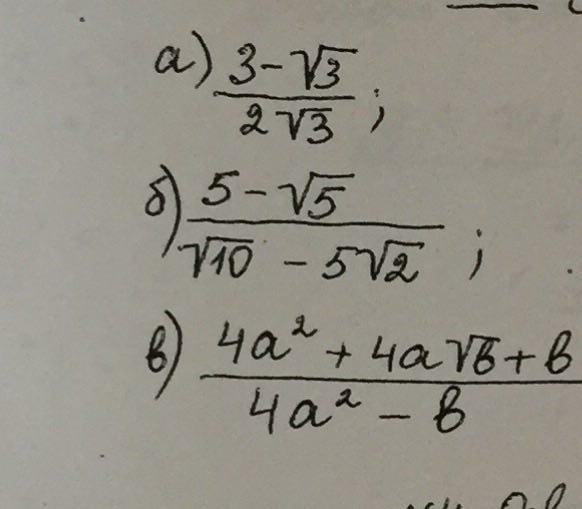 а) (3-√3)/(2√3);
б) (5-√5)/(√10 - 5√2);
в) (4a² + 4a√b + b)/(4a² - b)